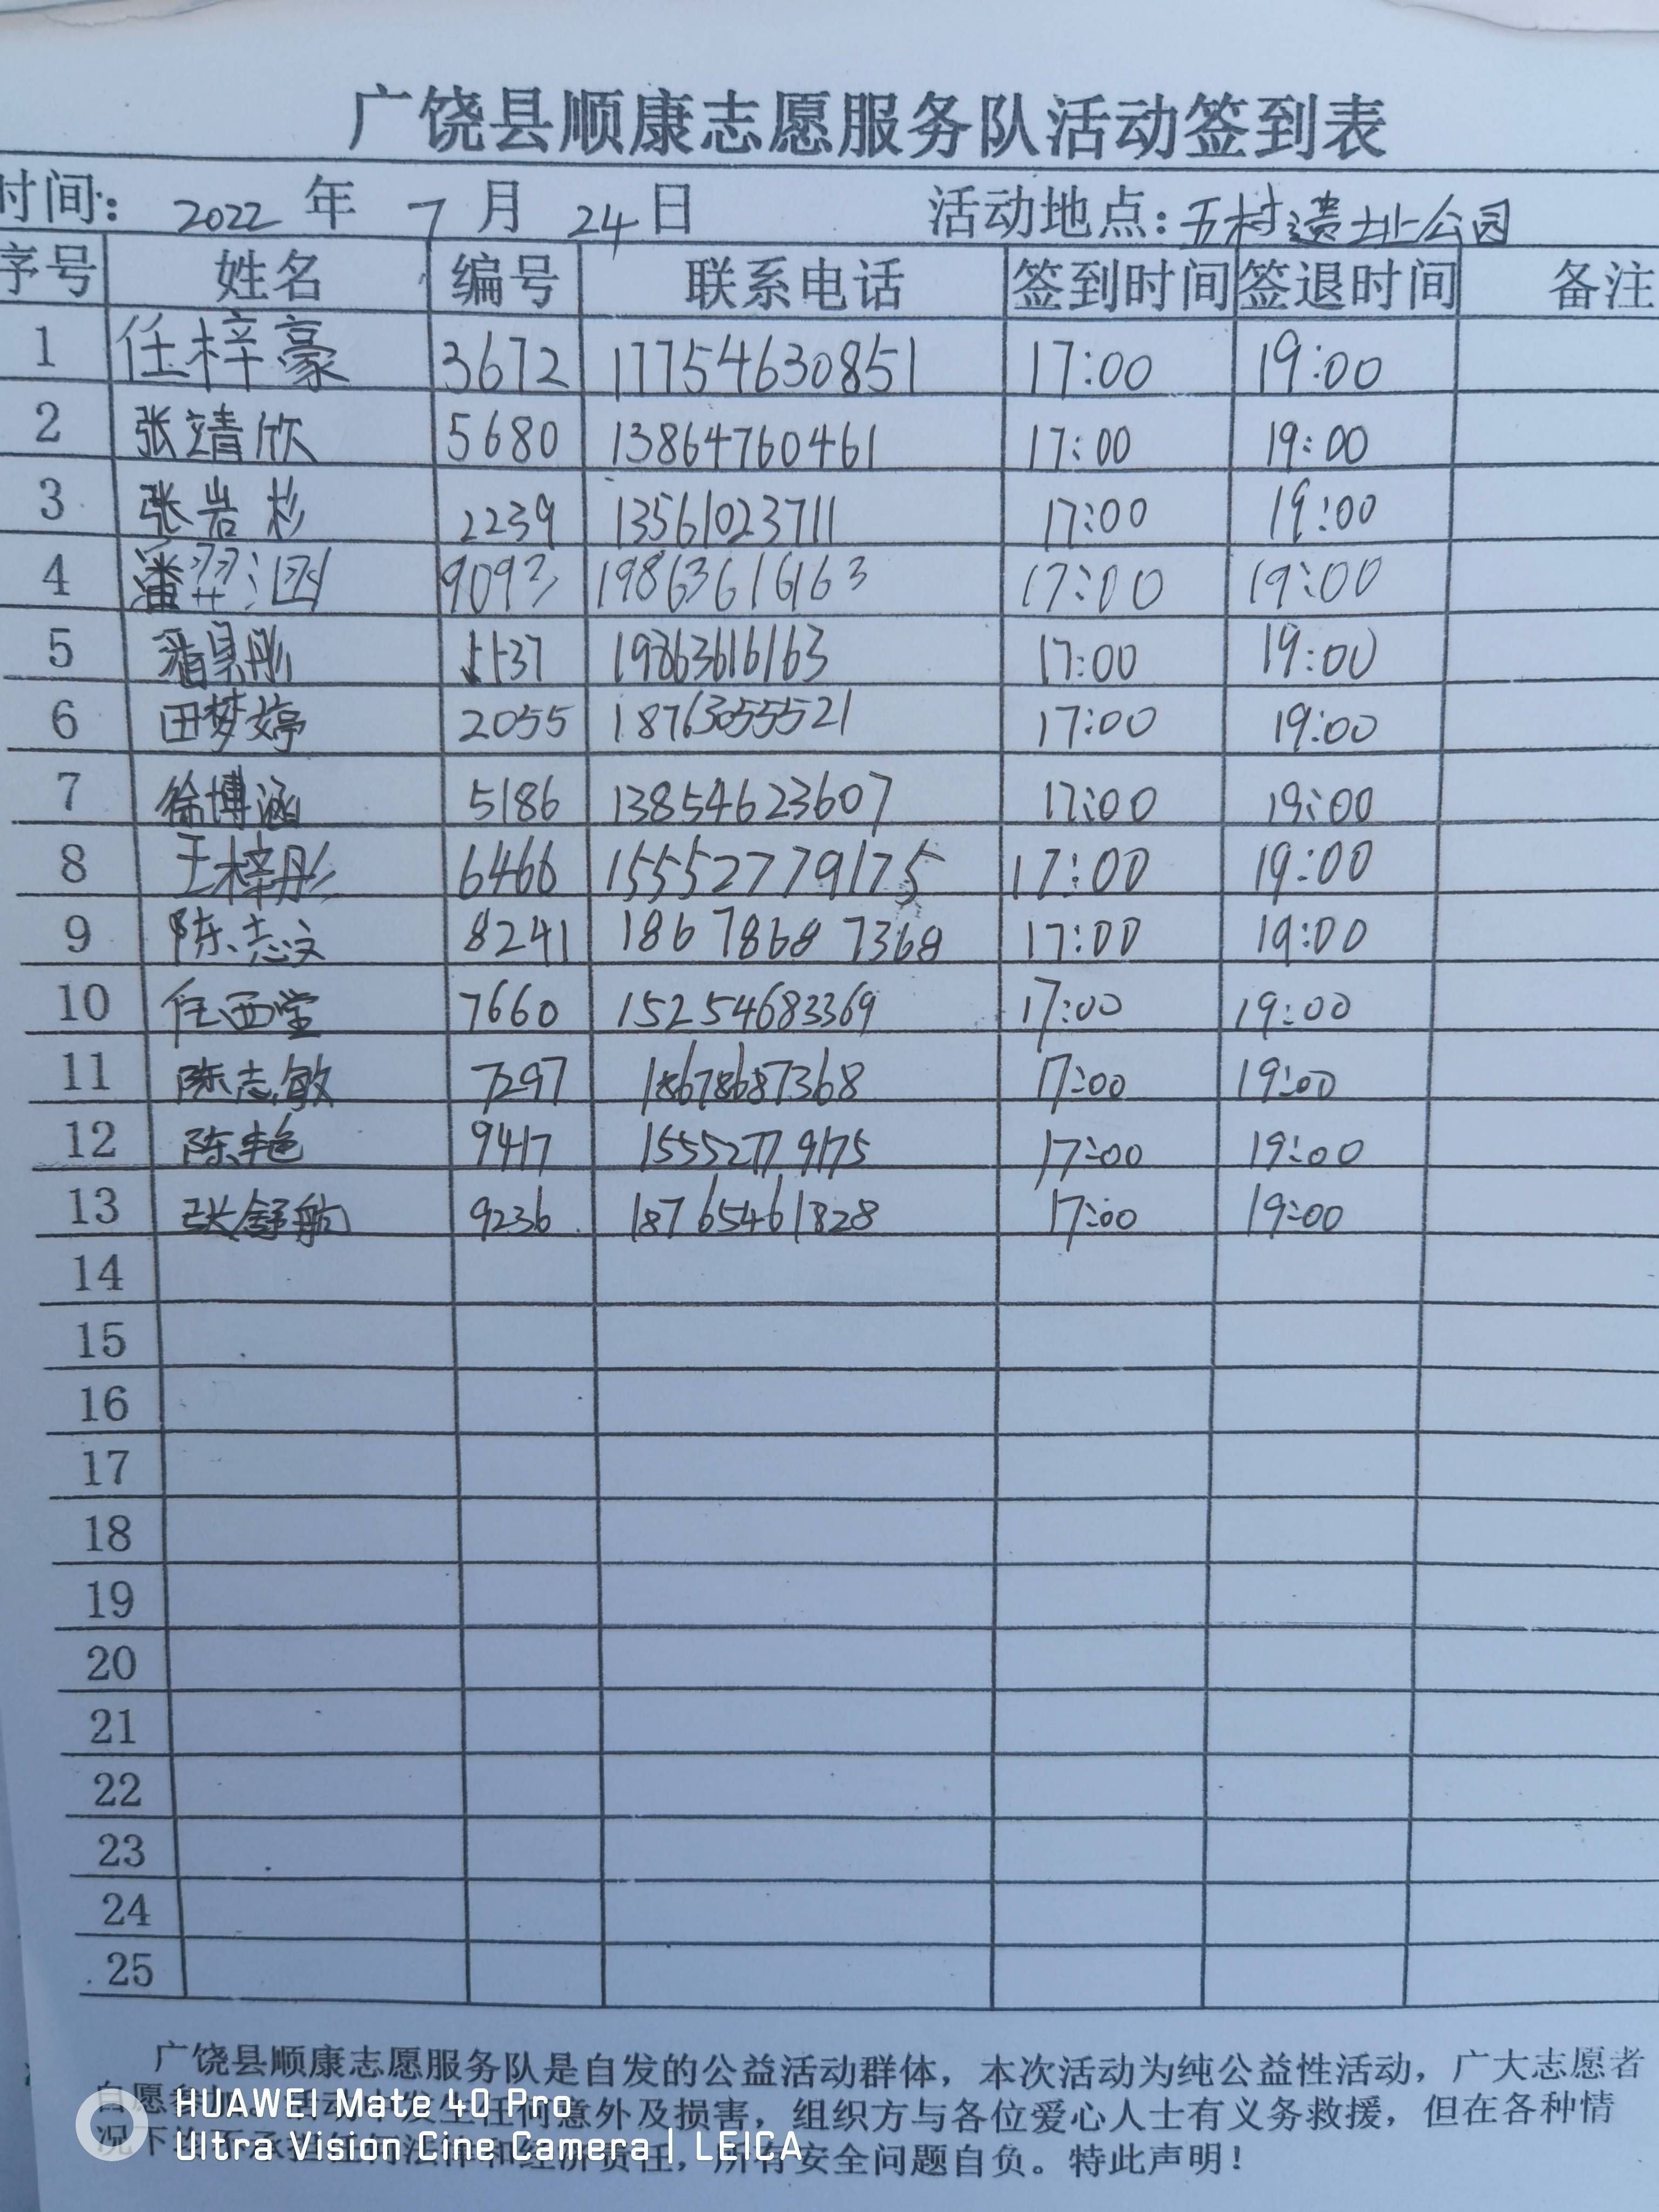 广饶县顺康志愿服务队活动签到表
时间: 2022 年 7 月 24 日 活动地点:五村遗址公园
序号 姓名 编号 联系电话 签到时间 签退时间 备注
1 任梓豪 3672 17754630851 17:00 19:00
2 张靖欣 5680 13864760461 17:00 19:00
3 张岩杉 2239 13561023711 17:00 19:00
4 潘羿涵 9093 19863616163 17:00 19:00
5 潘昊彤 37 19863616163 17:00 19:00
6 田梦婷 2055 18763055521 17:00 19:00
7 徐博涵 5186 13854623607 17:00 19:00
8 王梓彤 6466 15552779175 17:00 19:00
9 陈志文 8241 186 7868 7368 17:00 19:00
10 任西堂 7660 15254683369 17:00 19:00
11 陈志敏 7297 18678687368 17:00 19:00
12 陈艳 9417 15552779175 17:00 19:00
13 张舒航 9236 18765461828 17:00 19:00
14
15
16
17
18
19
20
21
22
23
24
25
广饶县顺康志愿服务队是自发的公益活动群体，本次活动为纯公益性活动，广大志愿者
自愿参 生任何意外及损害，组织方与各位爱心人士有义务救援，但在各种情
况下 承担任何法律和经济责任，所有安全问题自负。特此声明！
HUAWEI Mate 40 Pro
Ultra Vision Cine Camera | LEICA